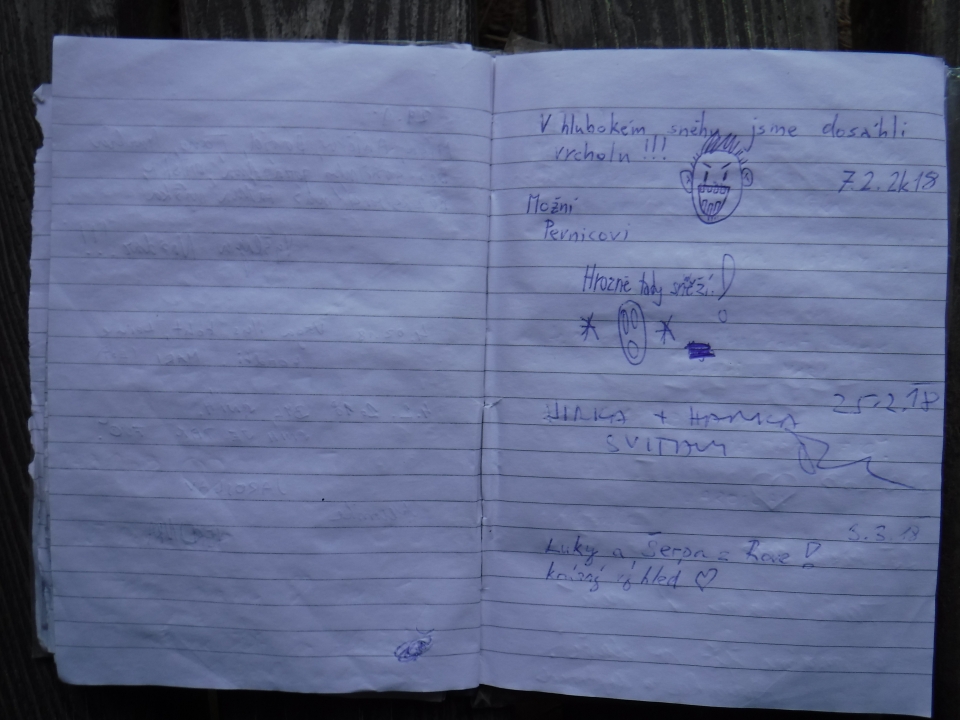 V hlubokém sněhu jsme dosáhli
vrcholu !!!
7.2.2k18
Možní
Pernicovi
Hrozně tady sněží!
25.2.18
JIRKA + HANKA
SVITAVY
5.3.18
Luky a z
krásný výhled ♡